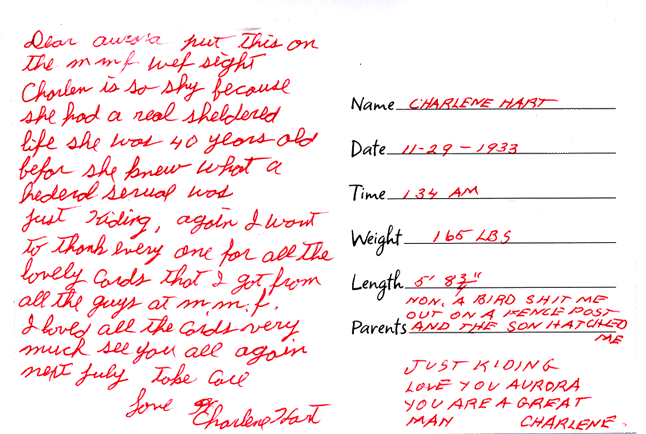 Dear aurora put this on
the m m f wef sight
Charlen is so shy because
she had a real sheldered
life she was 40 years old
befor she knew what a
hederal serual was
just Kiding, again I want
to thank every one for all the
lovely Cards that I got from
all the guys at m.m.f.
I loved all the Cards very
much see you all again
next July Take Care
Love
Charlene Hart
Name CHARLENE HART
Date 11-29-1933
Time 1 34 AM
Weight 165 LBS
Length 5' 8 3/4"
Parents NON, A BIRD SHIT ME
OUT ON A FENCE POST
AND THE SON HATCHED
ME
JUST KIDING
LOVE YOU AURORA
YOU ARE A GREAT
MAN CHARLENE.